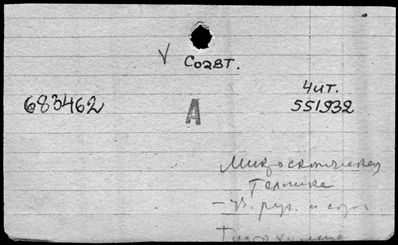 V
Соавт.
Чит.
683462
А
551932
Микроскопическая
техника